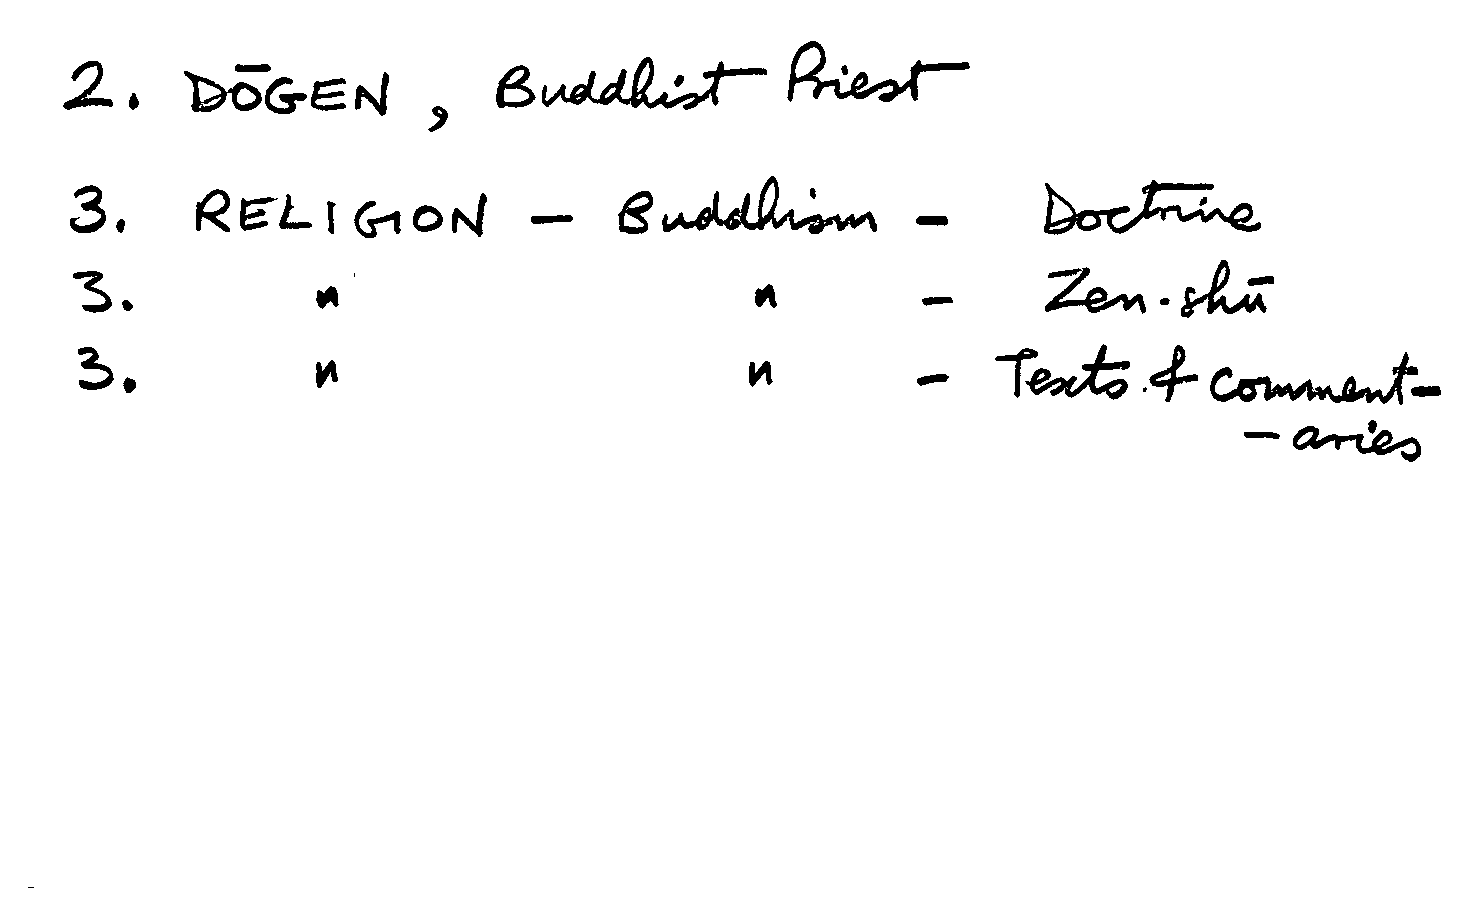 2. DŌGEN, Buddhist Priest
3. RELIGION - Buddhism - Doctrine
3. " " - Zen-shū
3. " " - Texts & comment-
-aries